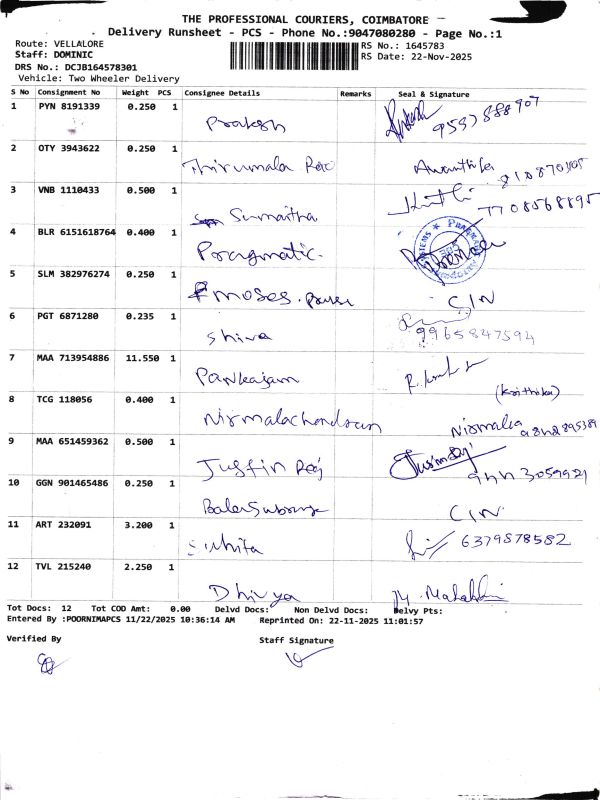 THE PROFESSIONAL COURIERS, COIMBATORE
Delivery Runsheet - PCS - Phone No.:9047080280 - Page No.:1
Route: VELLALORE
RS No.: 1645783
Staff: DOMINIC
RS Date: 22-Nov-2025
DRS No.: DCJB164578301
Vehicle: Two Wheeler Delivery
S No Consignment No Weight PCS Consignee Details Remarks Seal & Signature
1 PYN 8191339 0.250 1
Prakash
2 OTY 3943622 0.250 1
Thirumala Rao Avanthika
3 VNB 1110433 0.500 1
Sumaitha 7708568895
4 BLR 6151618764 0.400 1
Pragmatic.
5 SLM 382976274 0.250 1
moses. CIN
6 PGT 6871280 0.235 1
Shiva 9965847594
7 MAA 713954886 11.550 1
Pankajam
(Krithika)
8 TCG 118056 0.400 1
Nirmalachandran Nirmala
9 MAA 651459362 0.500 1
Justin Raj
10 GGN 901465486 0.250 1
CIN
11 ART 232091 3.200 1
6379878582
12 TVL 215240 2.250 1
Dhivya
Tot Docs: 12 Tot COD Amt: 0.00 Delvd Docs: Non Delvd Docs: Delvy Pts:
Entered By :POORNIMAPCS 11/22/2025 10:36:14 AM Reprinted On: 22-11-2025 11:01:57
Verified By Staff Signature